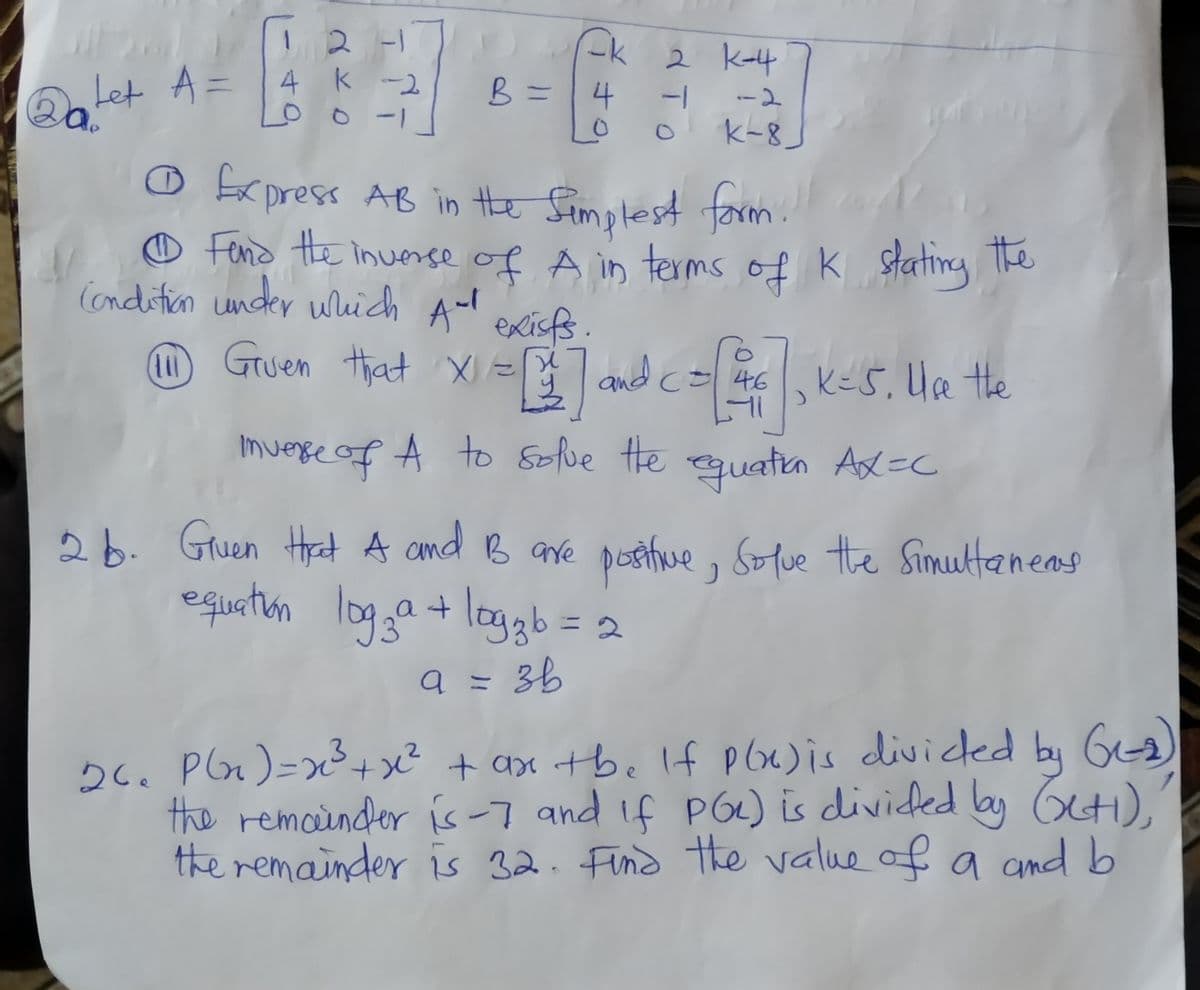 2a. Let A = [1 2 -1; 4 K -2; 0 0 -1] B = [-k 2 k-4; 4 -1 -2; 0 0 k-8]
(I) Express AB in the Simplest form.
(II) Find the inverse of A in terms of K stating the
condition under which A⁻¹ exists.
(III) Given that X = [x; y; z] and c = [0; 46; -11], K=5. Use the
inverse of A to solve the equation AX=C
2b. Given that A and B are positive, Solve the Simultaneous
equation log₃a + log₃b = 2
a = 3b
2c. P(x)=x³+x² + ax +b. If p(x) is divided by (x-2),
the remainder is -7 and if P(x) is divided by (x+1),
the remainder is 32. Find the value of a and b